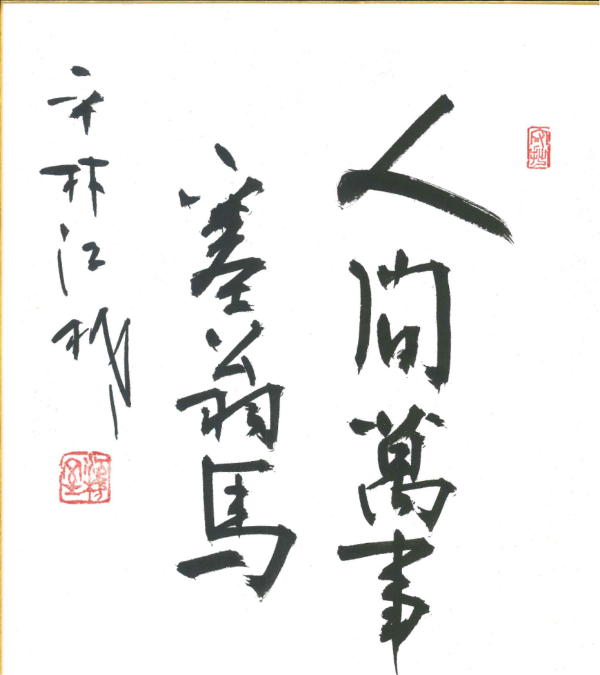 人間萬事
塞翁馬
平林江